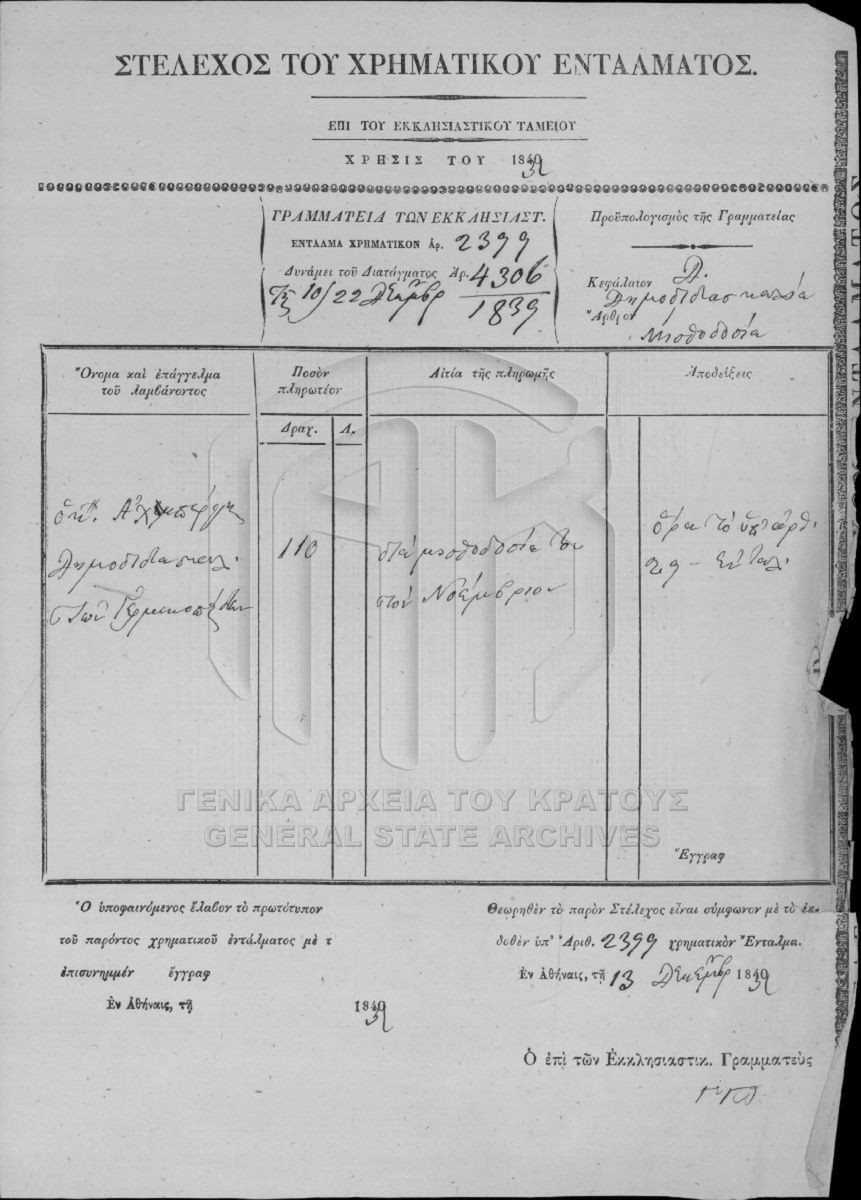 ΣΤΕΛΕΧΟΣ ΤΟΥ ΧΡΗΜΑΤΙΚΟΥ ΕΝΤΑΛΜΑΤΟΣ.
ΕΠΙ ΤΟΥ ΕΚΚΛΗΣΙΑΣΤΙΚΟΥ ΤΑΜΕΙΟΥ
ΧΡΗΣΙΣ ΤΟΥ 1839
ΓΡΑΜΜΑΤΕΙΑ ΤΩΝ ΕΚΚΛΗΣΙΑΣΤ.
ΕΝΤΑΛΜΑ ΧΡΗΜΑΤΙΚΟΝ ἀρ. 2399
Δυνάμει τοῦ Διατάγματος Ἀρ. 4306
10/22 Δεκεμβρ 1839
Προϋπολογισμὸς τῆς Γραμματείας
Κεφάλαιον Δ.
Δημοδιδασκαλία
Ἄρθρον
Μισθοδοσία
Ὄνομα καὶ ἐπάγγελμα
τοῦ λαμβάνοντος
Ποσὸν
πληρωτέον
Αἰτία τῆς πληρωμῆς
Ἀποδείξεις
Δραχ.
Λ.
Δημοδιδασκαλ.
110
διὰ μισθοδοσία του
τὸν Νοέμβριον
ὅρα τὸ ὑπ' ἀρθ.
Ἔγγραφ
Ὁ ὑποφαινόμενος ἔλαβον τὸ πρωτότυπον
τοῦ παρόντος χρηματικοῦ ἐντάλματος μὲ τ
ἐπισυνημμέν ἔγγραφ
Ἐν Ἀθήναις, τῇ 1839
Θεωρηθὲν τὸ παρὸν Στέλεχος εἶναι σύμφωνον μὲ τὸ ἐκ-
δοθὲν ὑπ' Ἀριθ. 2399 χρηματικὸν Ἔνταλμα.
Ἐν Ἀθήναις, τῇ 13 Δεκεμβρ 1839
Ὁ ἐπὶ τῶν Ἐκκλησιαστικ. Γραμματεὺς
ΓΕΝΙΚΑ ΑΡΧΕΙΑ ΤΟΥ ΚΡΑΤΟΥΣ
GENERAL STATE ARCHIVES